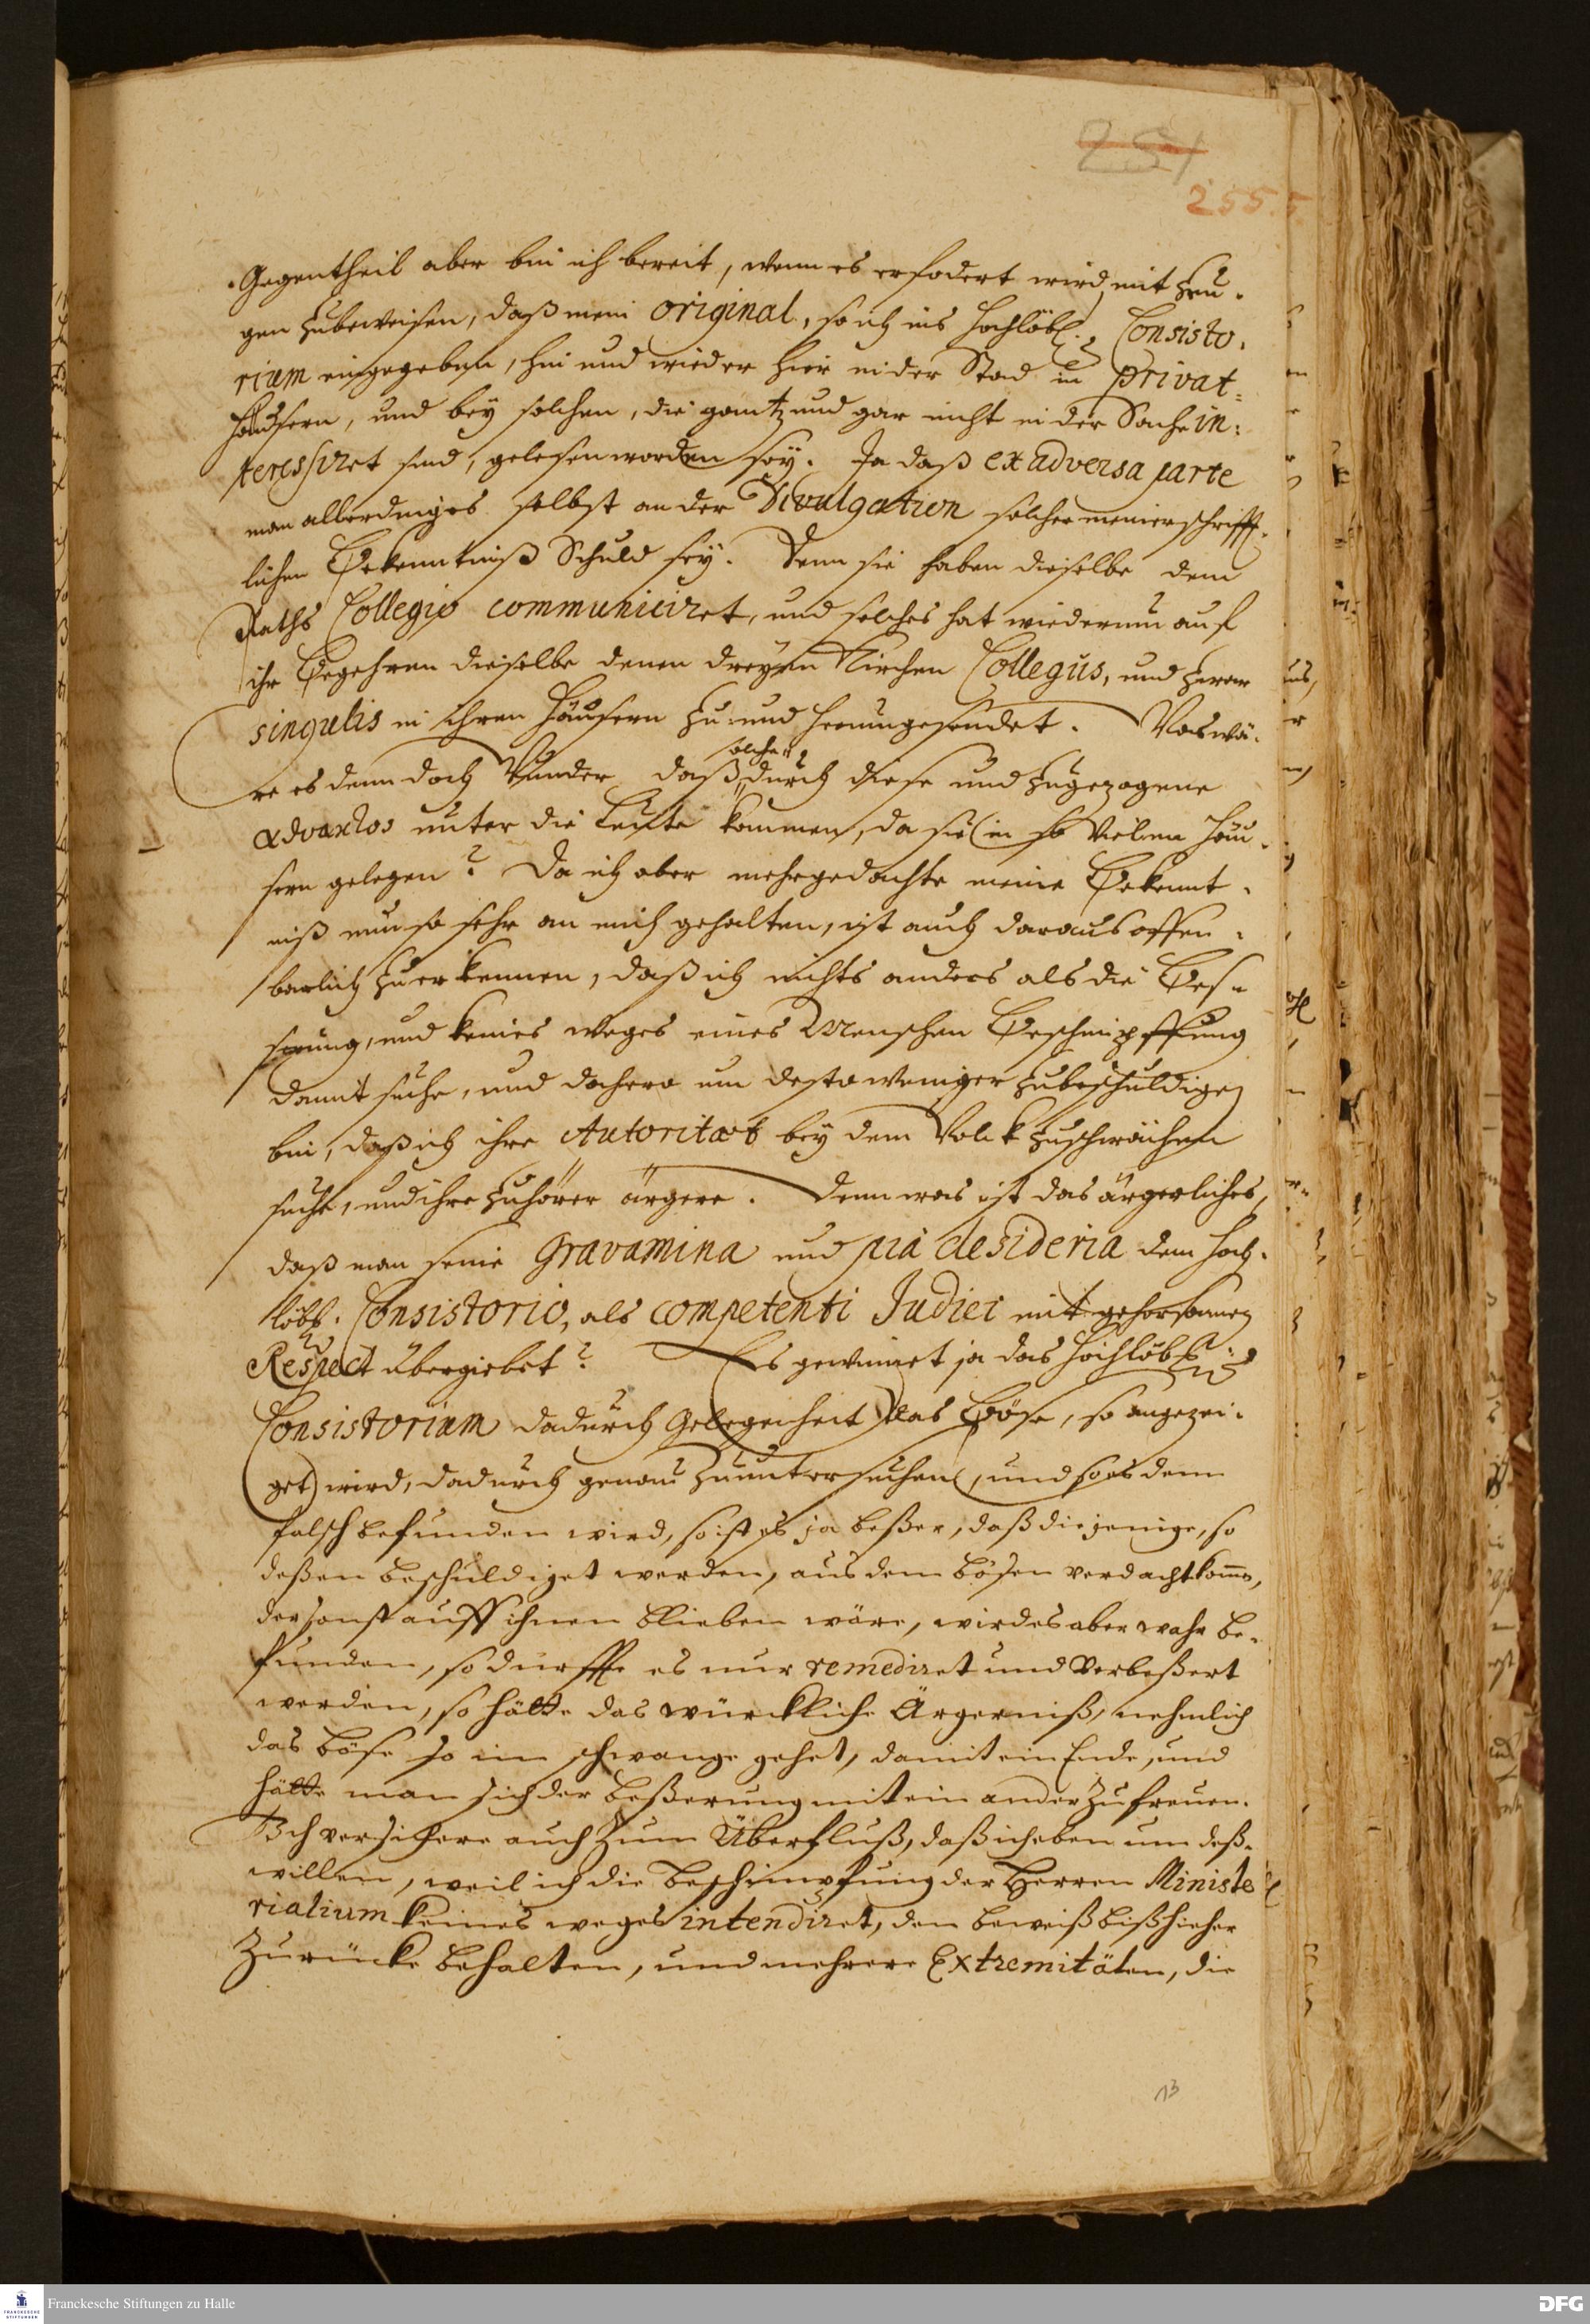 251
255.
Gegentheil aber bin ich bereit, wenn es erfodert wird, mit Zeu-
gen zubeweisen, daß mein original, so ich ins Hochlöbl. Consisto-
rium eingegeben, hin und wieder hier in der Stad in privat-
Häusern, und bey solchen, die gantz und gar nicht in der Sache in-
teressiret sind, gelesen worden sey. Ja daß ex adversa parte
man allerdinges selbst an der Divulgation solcher meiner schrifft-
lichen Bekenntniß Schuld sey. Denn sie haben dieselbe dem
Raths Collegio communiciret, und solches hat wiederum auf
ihr Begehren dieselbe denen dreyen Kirchen Collegiis, und zwar
singulis in ihren Häusern zu- und herumgesendet. Was wä-
re es denn doch Wunder, daß solche durch diese und zugezogene
advocatos unter die Leute kommen, da sie in so vielen Häu-
sern gelegen? Da ich aber mehrgedachte meine Bekennt-
niß nun so sehr an mich gehalten, ist auch daraus offen-
barlich zu erkennen, daß ich nichts anders als die Bes-
serung, und keines weges eines Menschen Beschimpffung
damit suche, und dahero um desto weniger zubeschuldigen
bin, daß ich ihre Autoritæt bey dem Volck zuschwächen
suche, und ihre Zuhörer ärgere. Denn was ist das ärgerliches,
daß man seine Gravamina und pia desideria dem Hoch-
löbl. Consistorio, als competenti Judici mit gehorsamen
Respect übergiebet? Es gewinnet ja das Hochlöbl.
Consistorium dadurch Gelegenheit das Böse, so angezei-
get wird, dadurch genau zu untersuchen, und so es denn
falsch befunden wird, so ist es ja beßer, daß diejenige, so
deßen beschuldiget werden, aus dem bösen verdacht komme,
der sonst auff ihnen blieben wäre, wird es aber wahr be-
funden, so dürffte es nur remediret und verbeßert
werden, so hätte das würckliche Ärgerniß, nehmlich
das böse so im schwange gehet, damit ein Ende, und
hätte man sich der beßerung mit ein ander zu freuen.
Ich versichere auch zum Überfluß, daß ich eben um deß-
willen, weil ich die beschimpfung der Herren Ministe
rialium keines weges intendiret, den beweiß bißhieher
Zurücke behalten, und mehrere Extremitäten, die
13
Franckesche Stiftungen zu Halle
DFG